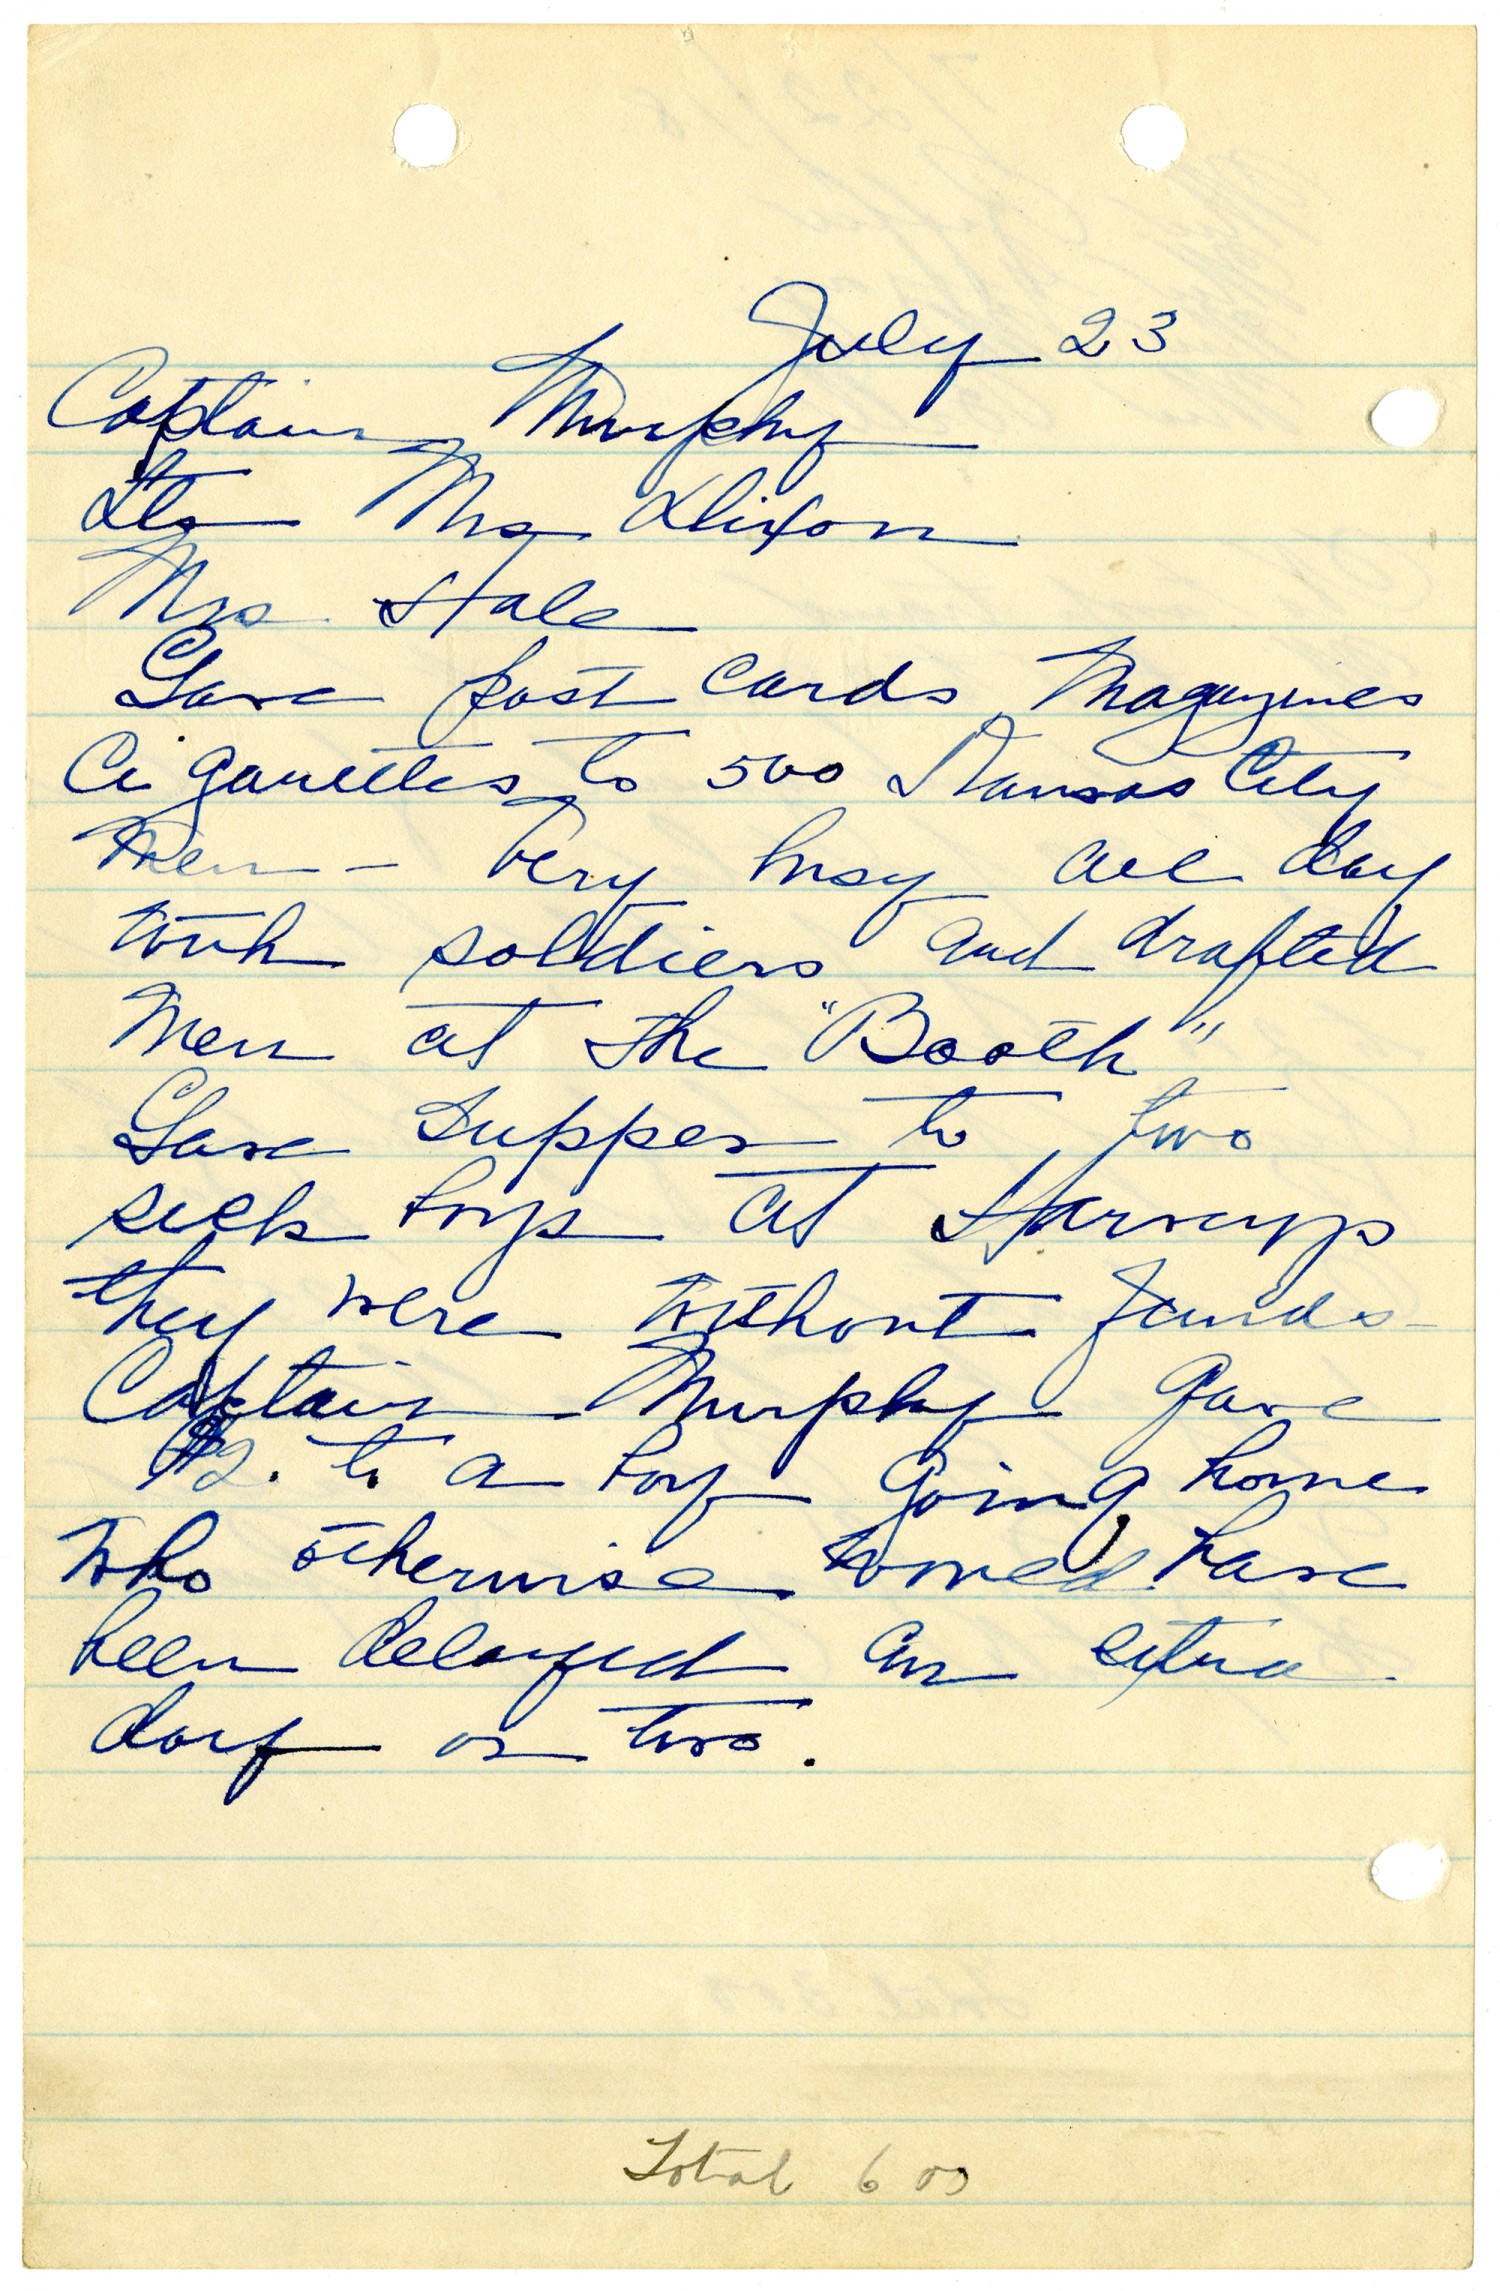 July 23
Captain Murphy
Lts Mrs Dixon
Mrs Hale
Gave post cards Magazines
Cigarettes to 500 Kansas City
Men – Very busy all day
with soldiers and drafted
Men at the "Booth"
Gave supper to two
sick boys at Harveys
they were without funds –
Captain Murphy gave
$2. to a boy going home
who otherwise would have
been delayed an extra
day or two.
Total 600